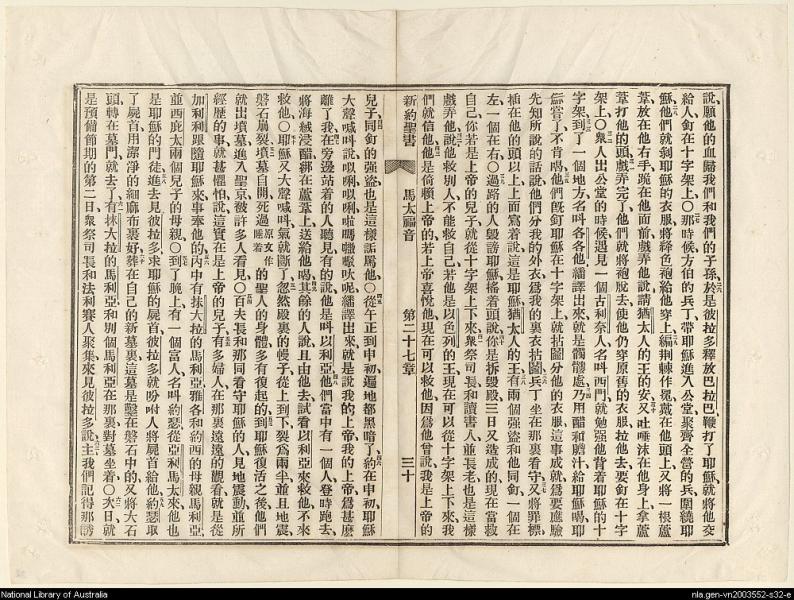 說願他的血歸我們和我們的子孫於是彼拉多釋放巴拉巴鞭打了耶穌就將他交
給人釘在十字架上〇那時候方伯的兵丁帶耶穌進入公堂聚齊全營的兵圍繞耶
穌他們就剝耶穌的衣服將絳色袍給他穿上編荆棘作冕戴在他頭上又將一根蘆
葦放在他右手跪在他面前戲弄他說請猶太人的王的安又吐唾沫在他身上拿蘆
葦打他的頭戲弄完了他們就將袍脫去使他仍穿原舊的衣服拉他去要釘在十字
架上〇衆人出公堂的時候遇見一個古利奈人名叫西門就勉强他背着耶穌的十
字架到了一個地方名叫各各他繙譯出來就是髑髏處乃用醋和膽汁給耶穌喝耶
穌嘗了不肯喝他們旣釘耶穌在十字架上就拈鬮分他的衣服這事成就爲要應驗
先知所說的話說他們分我的外衣爲我的裏衣拈鬮兵丁坐在那裏看守又將罪標
插在他的頭以上上面寫着說這是耶穌猶太人的王有兩個强盜和他同釘一個在
左一個在右〇過路的人毀謗耶穌搖着頭說你是拆毀殿三日又造成的現在當救
自己你若是上帝的兒子就從十字架上下來衆祭司長和讀書人並長老也是這樣
戲弄他說他救別人不能救自己若他是以色列的王現在可以從十字架上下來我
們就信他他是倚賴上帝的若上帝喜悅他現在可以救他因爲他曾說我是上帝的
新約聖書 馬太福音 第二十七章 三十
兒子同釘的强盜也是這樣話罵他〇從午正到申初遍地都黑暗了約在申初耶穌
大聲喊叫說以唎以唎啦嗎撒吸呔呢繙譯出來就是說我的上帝我的上帝爲甚麽
離了我在旁邊站着的人聽見有的說他是叫以利亞他們當中有一個人登時跑去
將海絨浸醋綁在蘆葦上送給他喝其餘的人說且由他去試看以利亞來救他不來
救他〇耶穌又大聲喊叫氣就斷了忽然殿裏的幔子從上到下裂爲兩半並且地震
磐石崩裂墳墓自開已過原文作睡着的聖人的身體多有復起的到耶穌復活之後他們
就出墳墓進入聖京被許多人看見〇百夫長和那同看守耶穌的人見地震動並所
經歷的事就甚懼怕說這實在是上帝的兒子有多婦人在那裏遠遠的觀看就是從
加利利跟隨耶穌來事奉他的內中有抹大拉的馬利亞雅各和約西的母親馬利亞
並西庇太兩個兒子的母親〇到了晚上有一個富人名叫約瑟從亞利馬太來他也
是耶穌的門徒進去見彼拉多求耶穌的屍首彼拉多就吩咐人將屍首給他約瑟取
了屍首用潔淨的細麻布裹好葬在自己的新墓裏這墓是鑿在磐石中的又將大石
頭轉在墓門就去了有抹大拉的馬利亞和別個馬利亞在那裏對墓坐着〇次日就
是預備節期的第二日衆祭司長和法利賽人聚集來見彼拉多說主我們記得那誘
National Library of Australia
nla.gen-vn2003552-s32-e